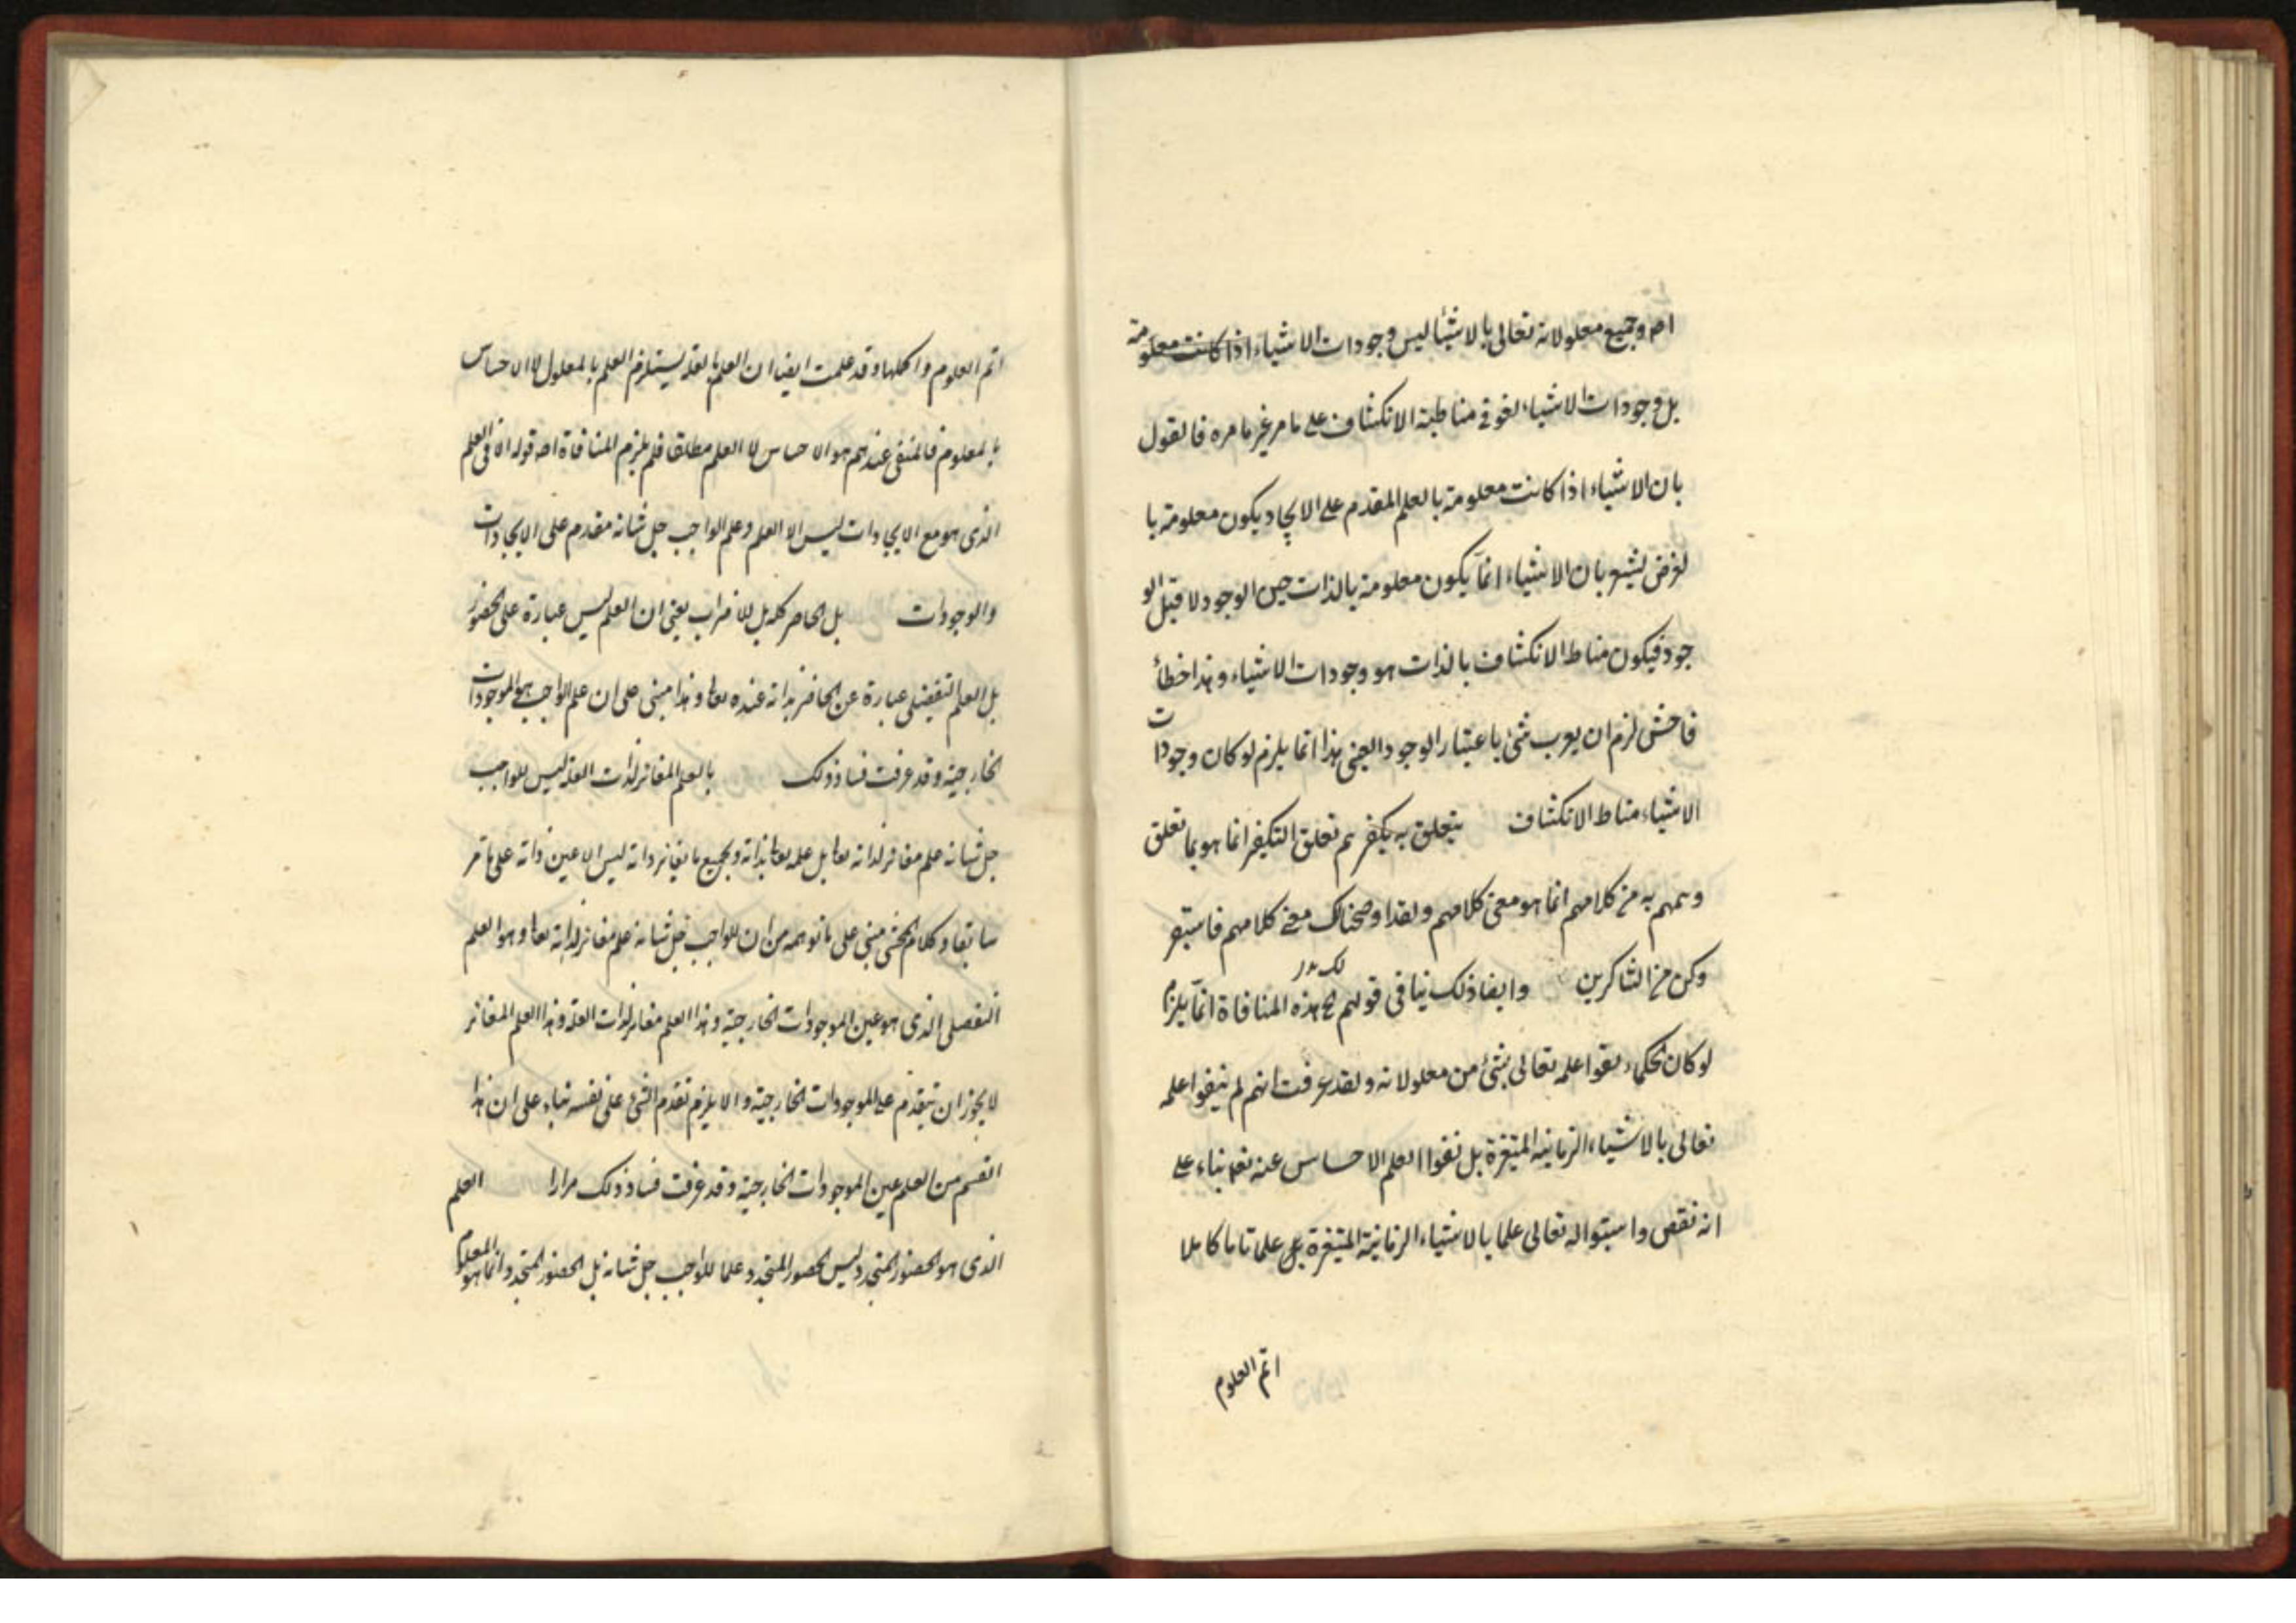 اه وجميع معلولاته تعالى بالاشيئا ليس وجودات الاشياء اذا كانت معلومة
بل وجودات الاشياء لغو فى مناطية الانكشاف على ما مر غير ما مرة فالقول
بان الاشياء اذا كانت معلومة بالعلم المقدم على الايجاد يكون معلومة با
لغرض يشعر بان الاشياء انما يكون معلومة بالذات حين الوجود لا قبل الو
جود فيكون مناط الانكشاف بالذات هو وجودات الاشياء وهذا خطأ
فاحش لزم ان يعرب شئ باعتبار الوجود العينى هذا انما يلزم لو كان وجودات
الاشياء مناط الانكشاف يتعلق به يكفرهم تعلق التكفير انما هو بما تعلق
وهمهم به من كلامهم انما هو معنى كلامهم ولقد اوضحنا لك معنى كلامهم فاستبقر
وكن من الشاكرين وايضا ذلك ينافى قولهم لك هذه المنافاة انما يلزم
لو كان الحكماء نفوا علمه تعالى بشئ من معلولاته ولقد عرفت انهم لم ينفوا علمه
تعالى بالاشياء الزمانية المتغيرة بل نفوا العلم الاحساس عنه تعا بناء على
انه نقص واثبتوا له تعالى علما بالاشياء الزمانية المتغيرة بل علما تاما كاملا
اتم العلوم
اتم العلوم واكملها وقد علمت ايضا ان العلم بالعلة يستلزم العلم بالمعلول لا الاحساس
بالمعلوم فالمنفى عندهم هو الاحساس لا العلم مطلقا فلم يلزم المنافاة اصه قوله اذ فى العلم
الذى هو مع الايجادات ليس الا العلم وعلم الواجب جل شانه مقدم على الايجادات
والوجودات بل الحاضر كله بل للاضراب يعنى ان العلم ليس عبارة على الحضور
بل العلم التفضيلى عبارة عن الحاضر بذاته عنده تعا وهذا مبنى على ان علم الواجب هى الموجودات
الخارجية وقد عرفت فساد ذلك بالعلم المغاير لذات العلة ليس للواجب
جل شانه علم مغاير لذاته تعا بل علمه تعا بذاته وبجميع ما يغاير ذاته ليس الا عين ذاته على ما مر
سابقا وكلام المحشى مبنى على ما توهمه من ان للواجب جل شانه علم مغاير لذاته تعا وهو العلم
التفصلى الذى هو عين الموجودات الخارجية وهذا العلم مغاير لذات العلة وهذا العلم المغاير
لا يجوز ان يتقدم على الموجودات الخارجية والا يلزم تقدم الشئ على نفسه بناء على ان هذا
القسم من العلم عين الموجودات الخارجية وقد عرفت فساد ذلك مرارا العلم
الذى هو الحضور المتجدد ليس الحضور المتجدد علما للواجب جل شانه بل الحضور المتجدد انما هو المعلوم